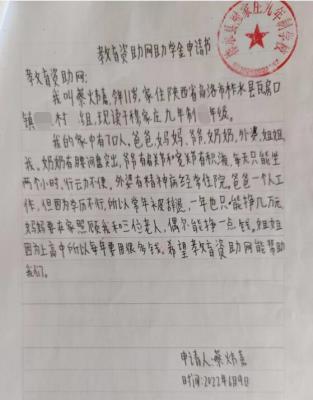 教育资助网助学金申请书
教育资助网:
我叫蔡炜嘉,今年11岁,家住陕西省商洛市柞水县瓦房口
镇 村 组,现读于穆家庄九年制 年级。
我的家中有7口人,爸爸,妈妈,爷爷,奶奶,外婆,姐姐,
我。奶奶有腰间盘突出,爷爷有 每天只能坐
两个小时,行云力不便,外婆有精神病经常住院。爸爸一个人工
作,但因为学历不行,所以常年被辞退,一年也只能挣几万元,
妈妈要在家照顾我和三位老人,偶尔能挣一点钱。姐姐
因为上高中所以每年要用很多钱。希望教育资助网能帮助
我们。
申请人:蔡炜嘉
时间:2022年6月9日
柞水县 家庄九年制学校